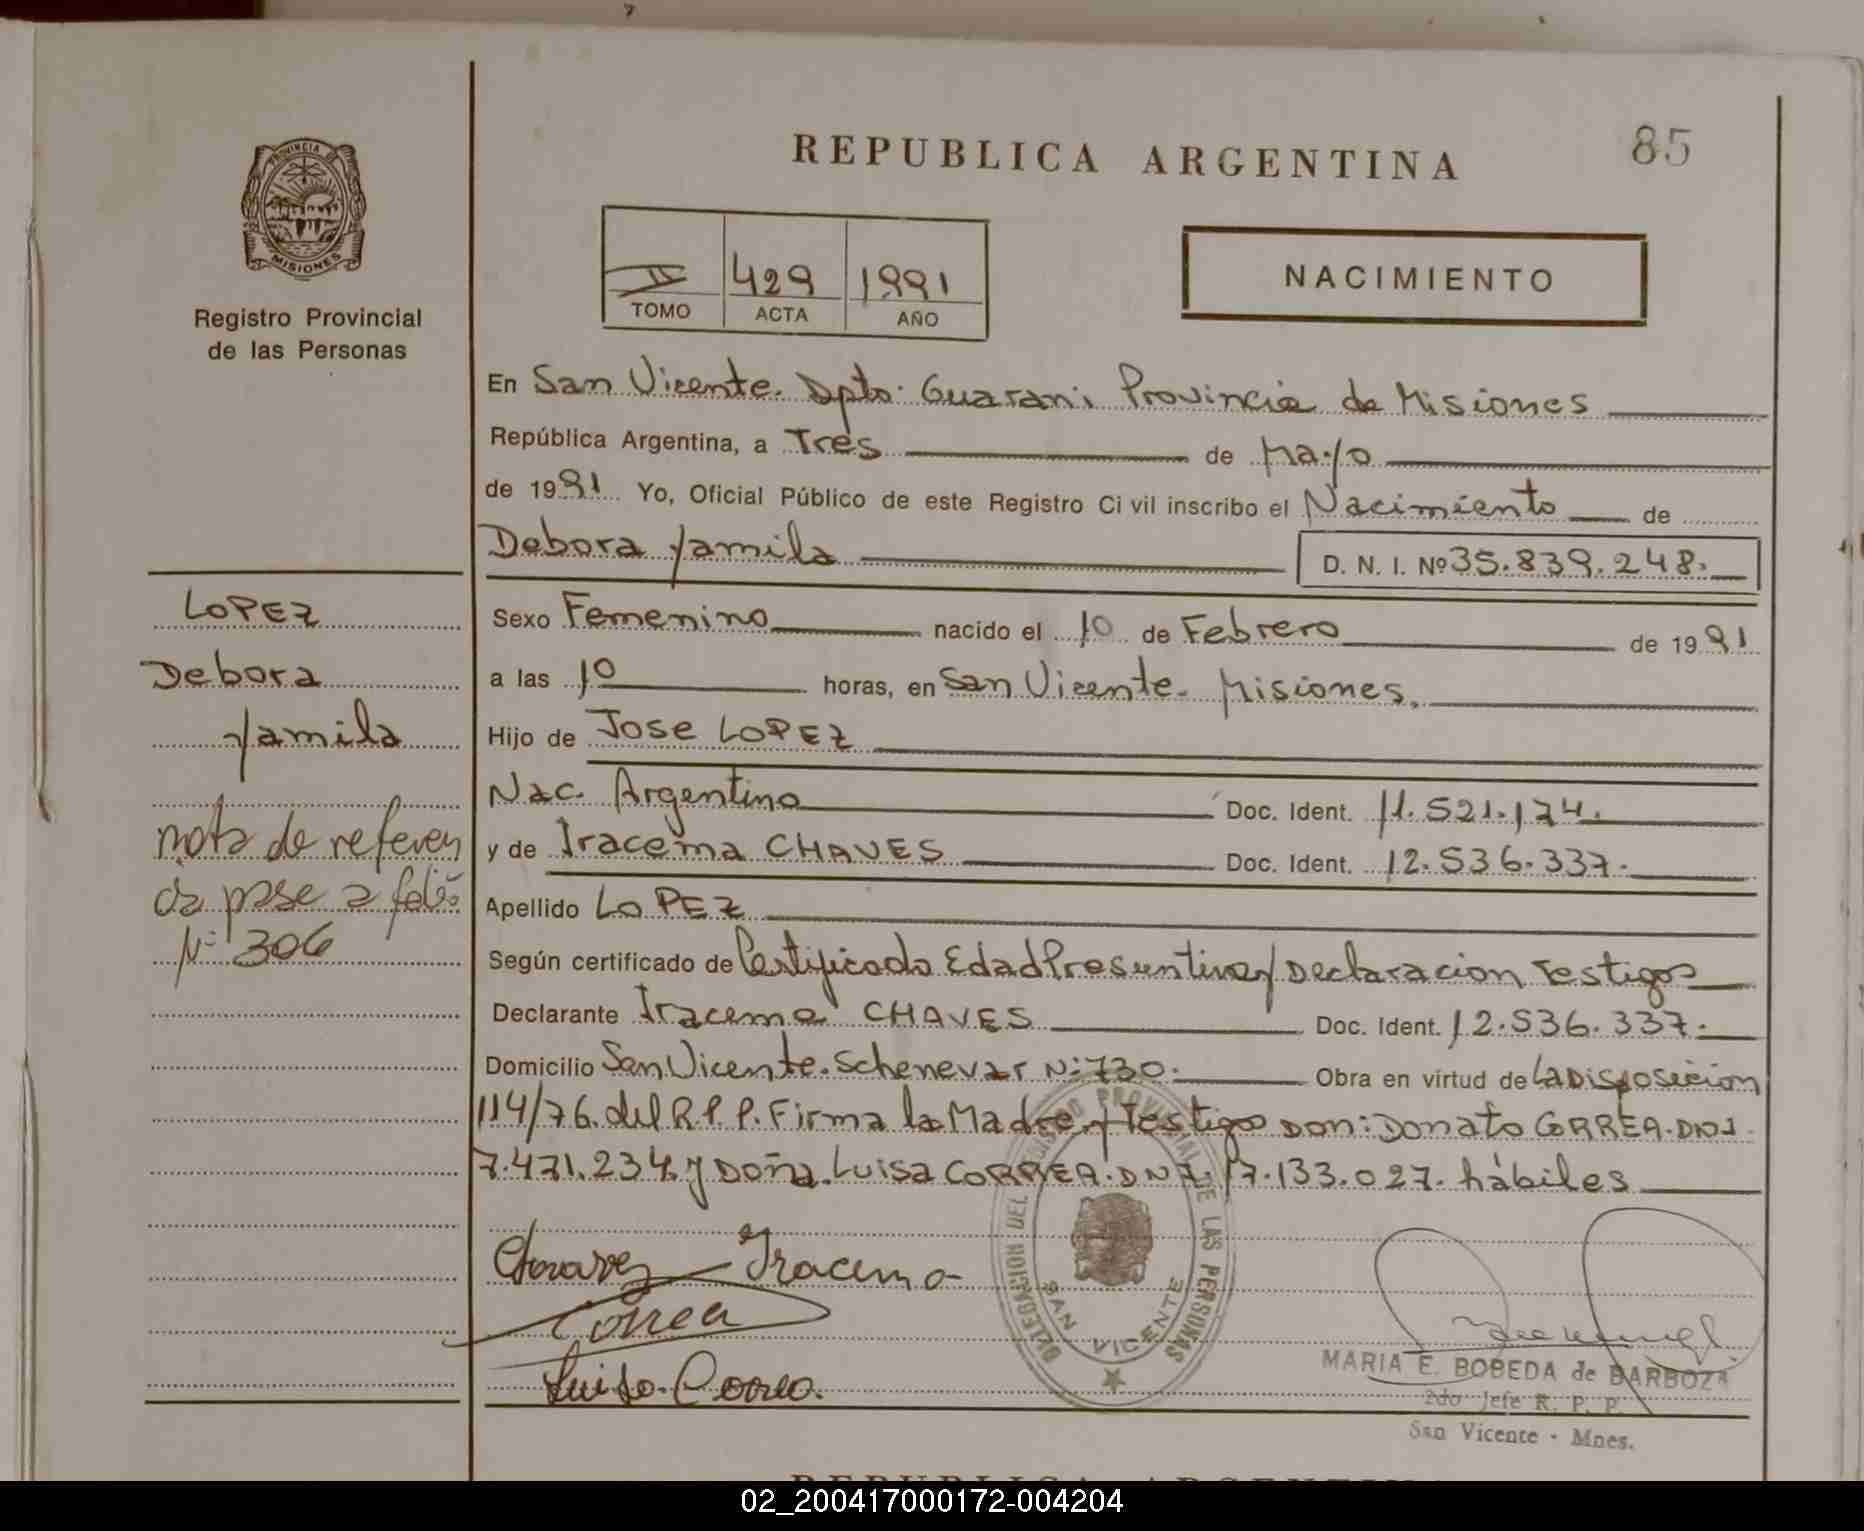 REPUBLICA ARGENTINA
85
PROVINCIA DE
MISIONES
Registro Provincial
de las Personas
429 1991
TOMO ACTA AÑO
NACIMIENTO
En San Vicente. Dpto. Guarani Provincia de Misiones
República Argentina, a Tres de Mayo
de 1991 Yo, Oficial Público de este Registro Civil inscribo el Nacimiento de
Debora Yamila D. N. I. Nº 35.839.248.
LOPEZ
Debora
Yamila
nota de referen
cia pase a folio
Nº 306
Sexo Femenino nacido el 10 de Febrero de 1991
a las 10 horas, en San Vicente. Misiones.
Hijo de Jose LOPEZ
Nac. Argentino Doc. Ident. 11.521.174.
y de Iracema CHAVES Doc. Ident. 12.536.337.
Apellido LOPEZ
Según certificado de Certificado Edad Presuntiva y Declaracion Testigos
Declarante Iracema CHAVES Doc. Ident. 12.536.337.
Domicilio San Vicente. Schenevar Nº 730. Obra en virtud de La Disposicion
114/76. del R.P.P. Firma la Madre y Testigos Don: Donato CORREA. DNI
7.471.234. y Doña. Luisa CORREA. DNI. 17.133.027. hábiles
Chavez Iracema
Correa
Luisa Correa.
DELEGACION DEL REGISTRO PROVINCIAL DE LAS PERSONAS
SAN VICENTE
MARIA E. BOBEDA de BARBOZA
2do Jefe R. P. P.
San Vicente - Mnes.
REPUBLICA ARGENTINA
02_200417000172-004204